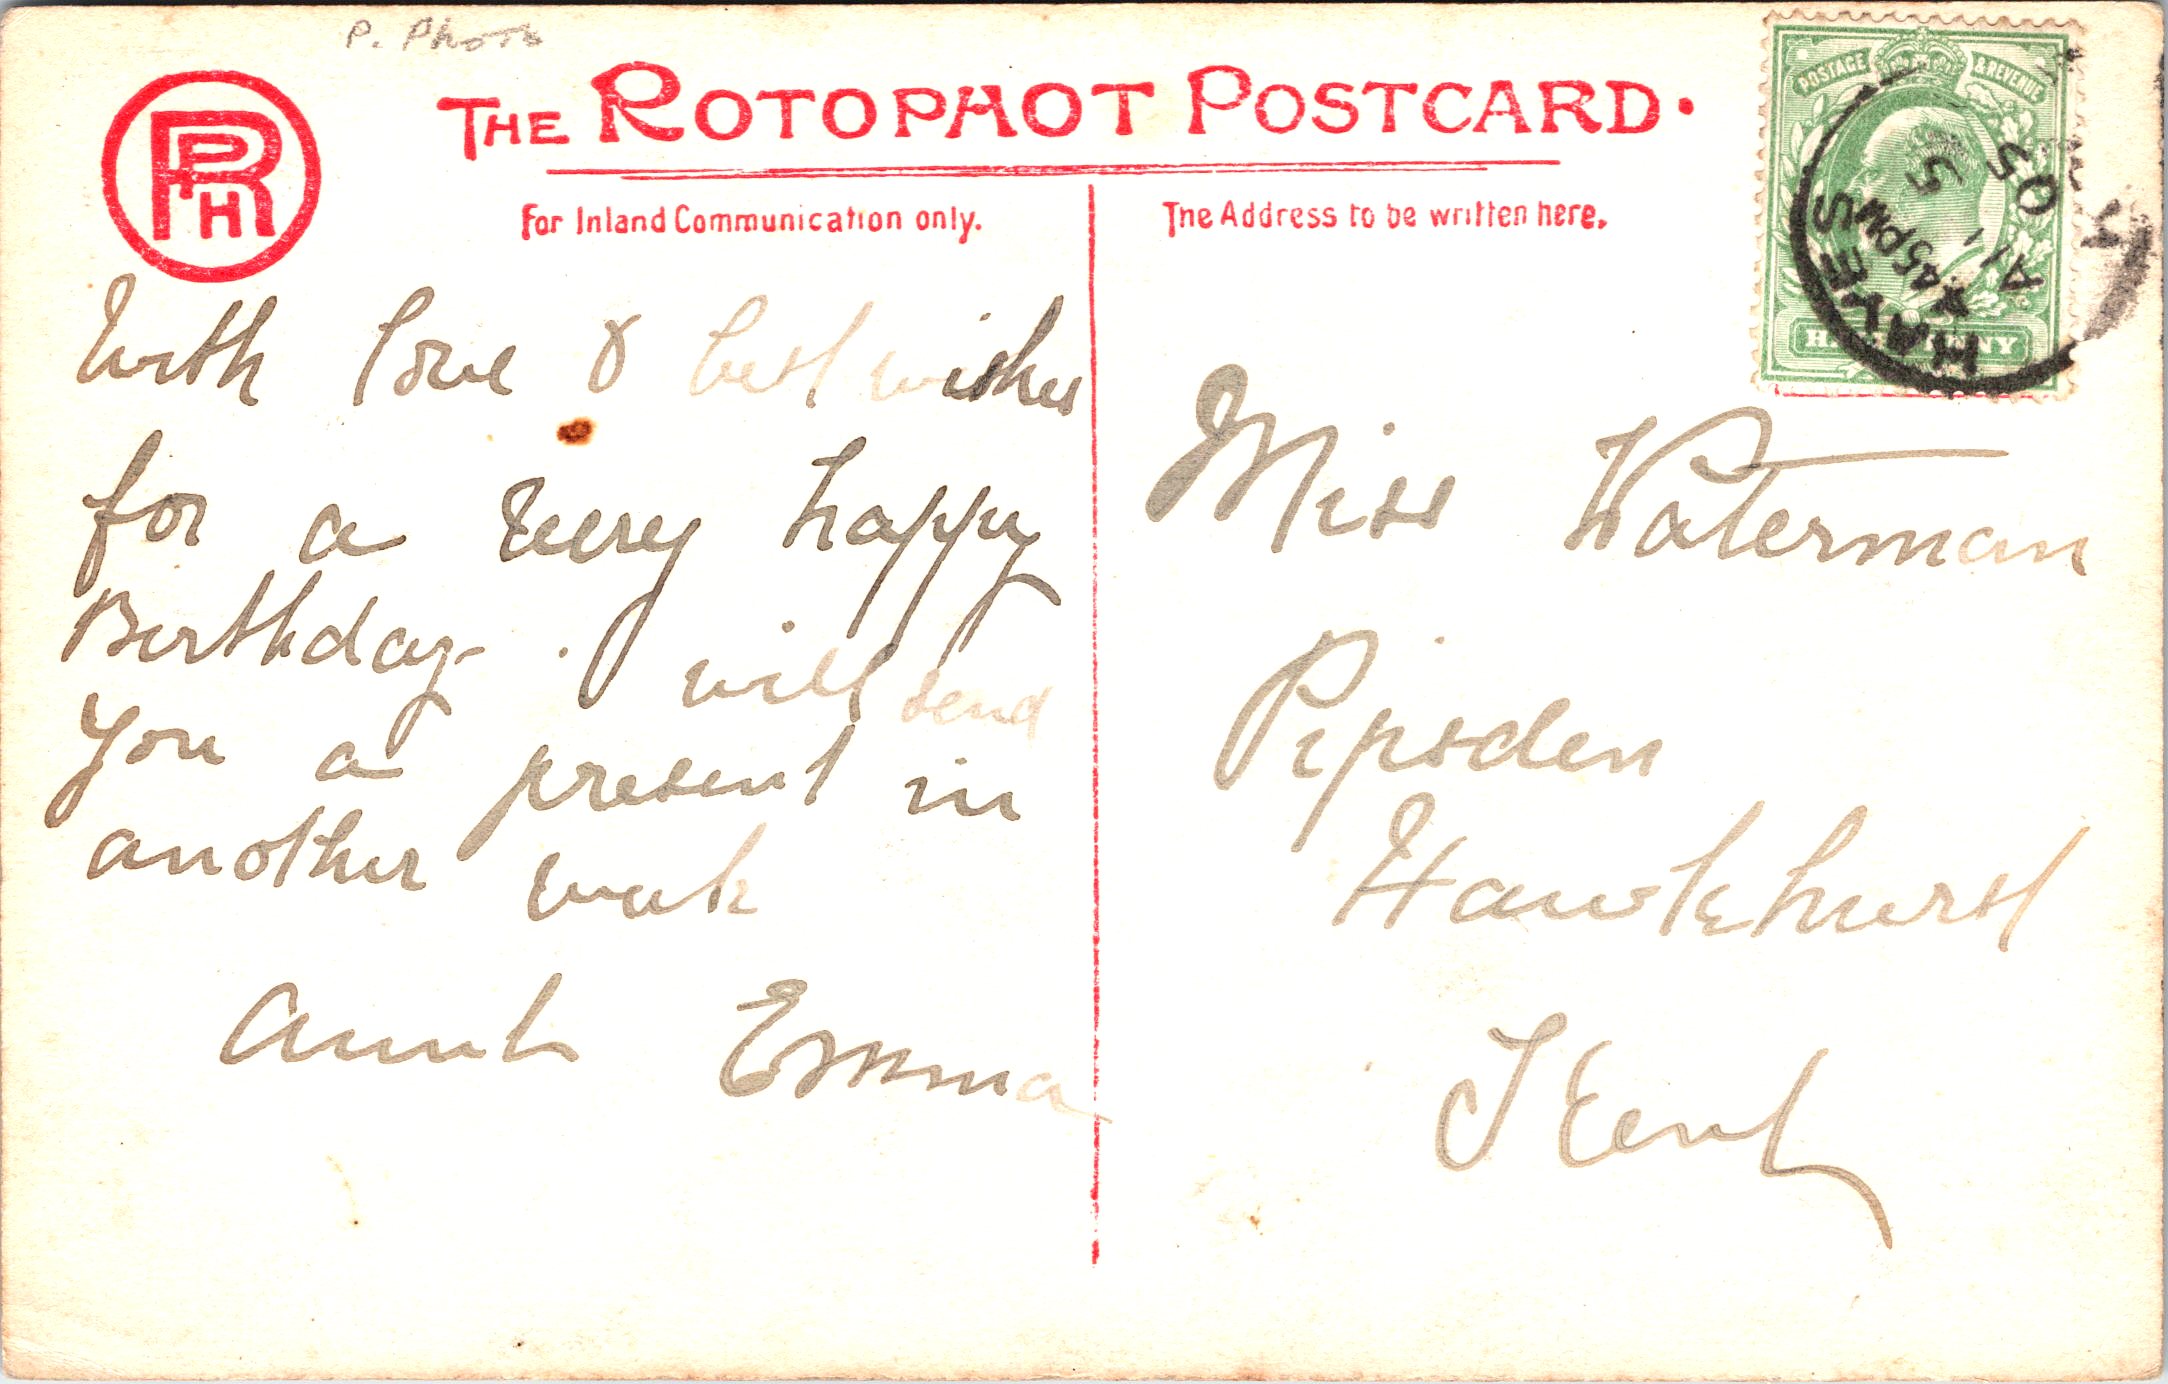 P. Photo
RPH
THE ROTOPHOT POSTCARD.
For Inland Communication only.
The Address to be written here.
POSTAGE & REVENUE
HALFPENNY
HAYES
With love & best wishes
for a very happy
Birthday. will send
you a present in
another week
Aunt Emma
Miss Waterman
Pipsden
Hawkhurst
Kent